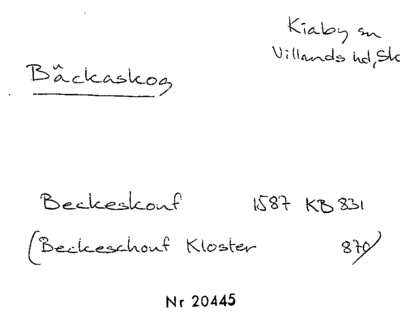 Kiaby sn
Villands hd, Sk
Bäckaskog
Beckeskouf 1587 KB 831
(Beckeschouf Kloster 870)
Nr 20445